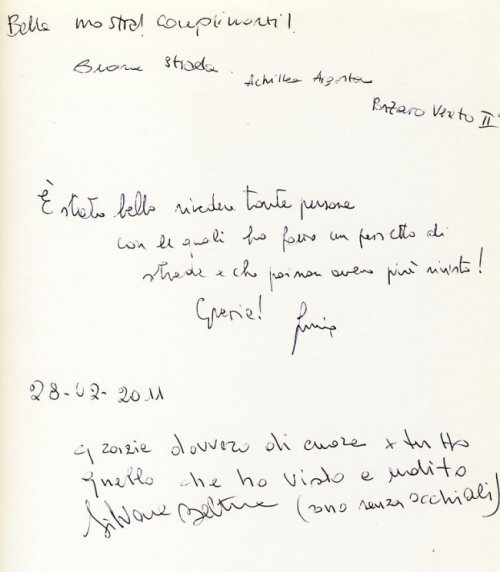 Bella mostra! Complimenti!
Buona strada.
Achillea Argenta
II°
È stato bello rivedere tante persone
con le quali ho fatto un pezzetto di
strada e che poi non avevo più rivisto!
Grazie!
28-02-2011
grazie davvero di cuore x tutto
quello che ho visto e udito
Silvana (sono senza occhiali)